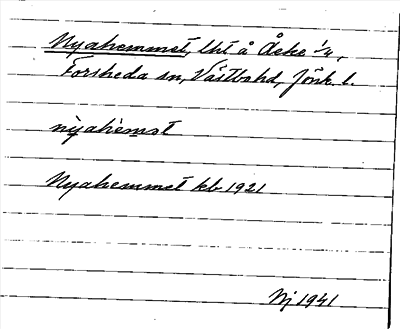 Nyahemmet, lht å Åeke 1/4,
Forsheda sn, Västbo hd, Jönk. l.
nỳahèmət
Nyahemmet kb 1921
Nj 1941